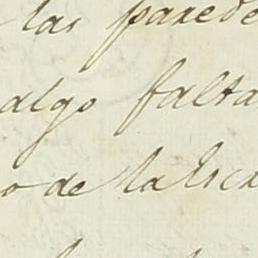 las parede
algo falta
o de la licen